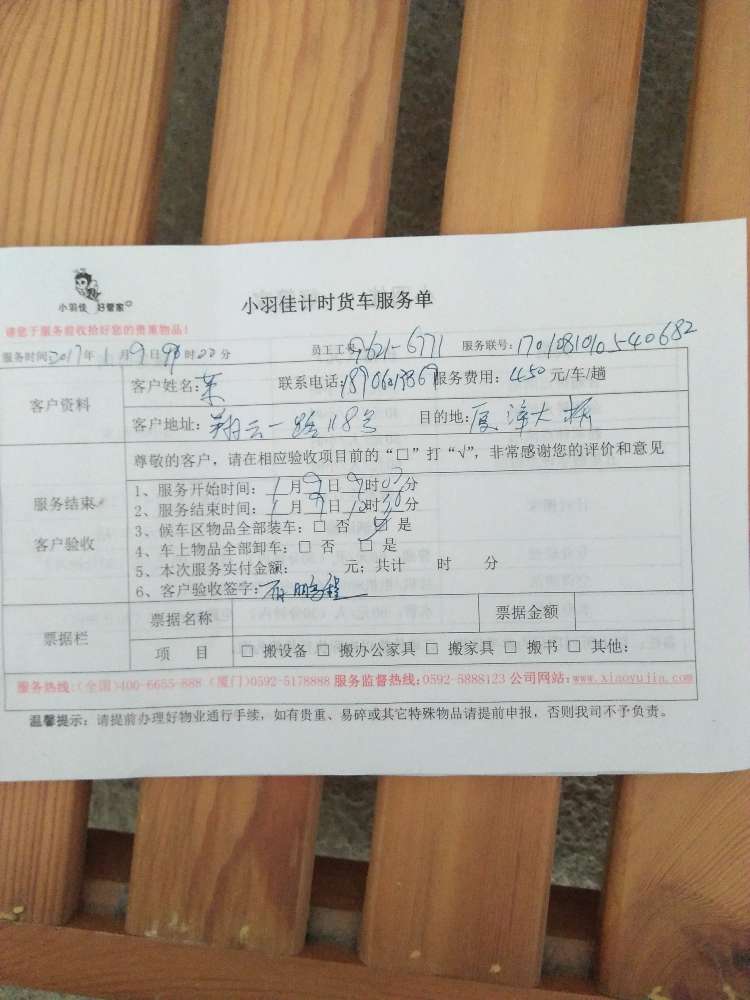 小羽佳 好管家
小羽佳计时货车服务单
请您于服务前收拾好您的贵重物品!
服务时间2017年1月9日9时00分 员工工号:9621-6771 服务联号:1701081010540682
客户资料
客户姓名: 联系电话: 服务费用:450元/车/趟
客户地址:翔云一路118号 目的地:厦漳大桥
服务结束
客户验收
尊敬的客户,请在相应验收项目前的“□”打“√”,非常感谢您的评价和意见
1、服务开始时间:1月9日9时00分
2、服务结束时间:1月9日12时30分
3、候车区物品全部装车:□ 否 ☑ 是
4、车上物品全部卸车:□ 否 □ 是
5、本次服务实付金额: 元;共计 时 分
6、客户验收签字:鹏程
票据栏
票据名称 票据金额
项 目 □ 搬设备 □ 搬办公家具 □ 搬家具 □ 搬书 □ 其他:
服务热线:(全国)400-6655-888 (厦门)0592-5178888 服务监督热线:0592-5888123 公司网站:www.xiaoyujia.com
温馨提示:请提前办理好物业通行手续,如有贵重、易碎或其它特殊物品请提前申报,否则我司不予负责。